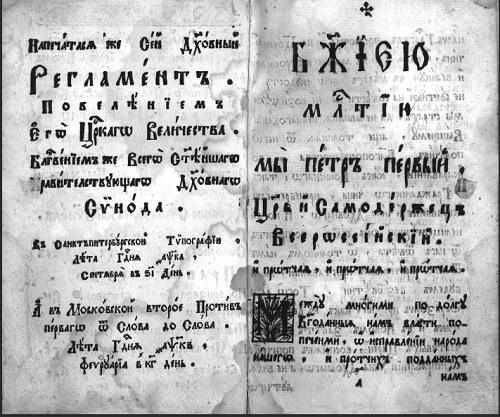 Напеча́тасѧ же Се́й Дх҃о́вный
Регла́ментъ .
Повелѣ́нїемъ
Е҆гѡ̀ Цр҃каго Вели́чества .
Блг҃ве́нїемъ же Всегѡ̀ Ст҃ѣ́йшагѡ
Прави́тельствующагѡ Дх҃о́внагѡ
Сѷно́да .
въ Санктъпитербу́ргской Тѷпогра́фїи ,
Лѣ́та Гд҃нѧ ҂аѱка ,
Септе́врїа въ ѕ҃і де́нь .
А҆ въ Моско́вской второ́е Проти́въ
пе́рвагѡ ѿ Сло́ва до Сло́ва .
Лѣ́та Гд҃нѧ ҂аѱкв ,
Феѵруа́рїа в҃ кг де́нь .
БЖ҃ІЕЮ
МЛ҃ТІЮ
МЫ̀ ПЕ́ТРЪ ПЕ́РВЫЙ .
Цр҃ь и҆ Самоде́ржецъ
Всерѡссі́йскїй .
и҆ про́тчаѧ , и҆ про́тчаѧ , и҆ про́тчаѧ .
Между мно́гими по до́лгу
Бг҃ода́нныѧ на́мъ вла́сти по-
пече́нїѧми , ѡ҆ и҆справле́нїи наро́да
на́шегѡ , и҆ про́тчихъ по́дданныхъ
а
на́мъ